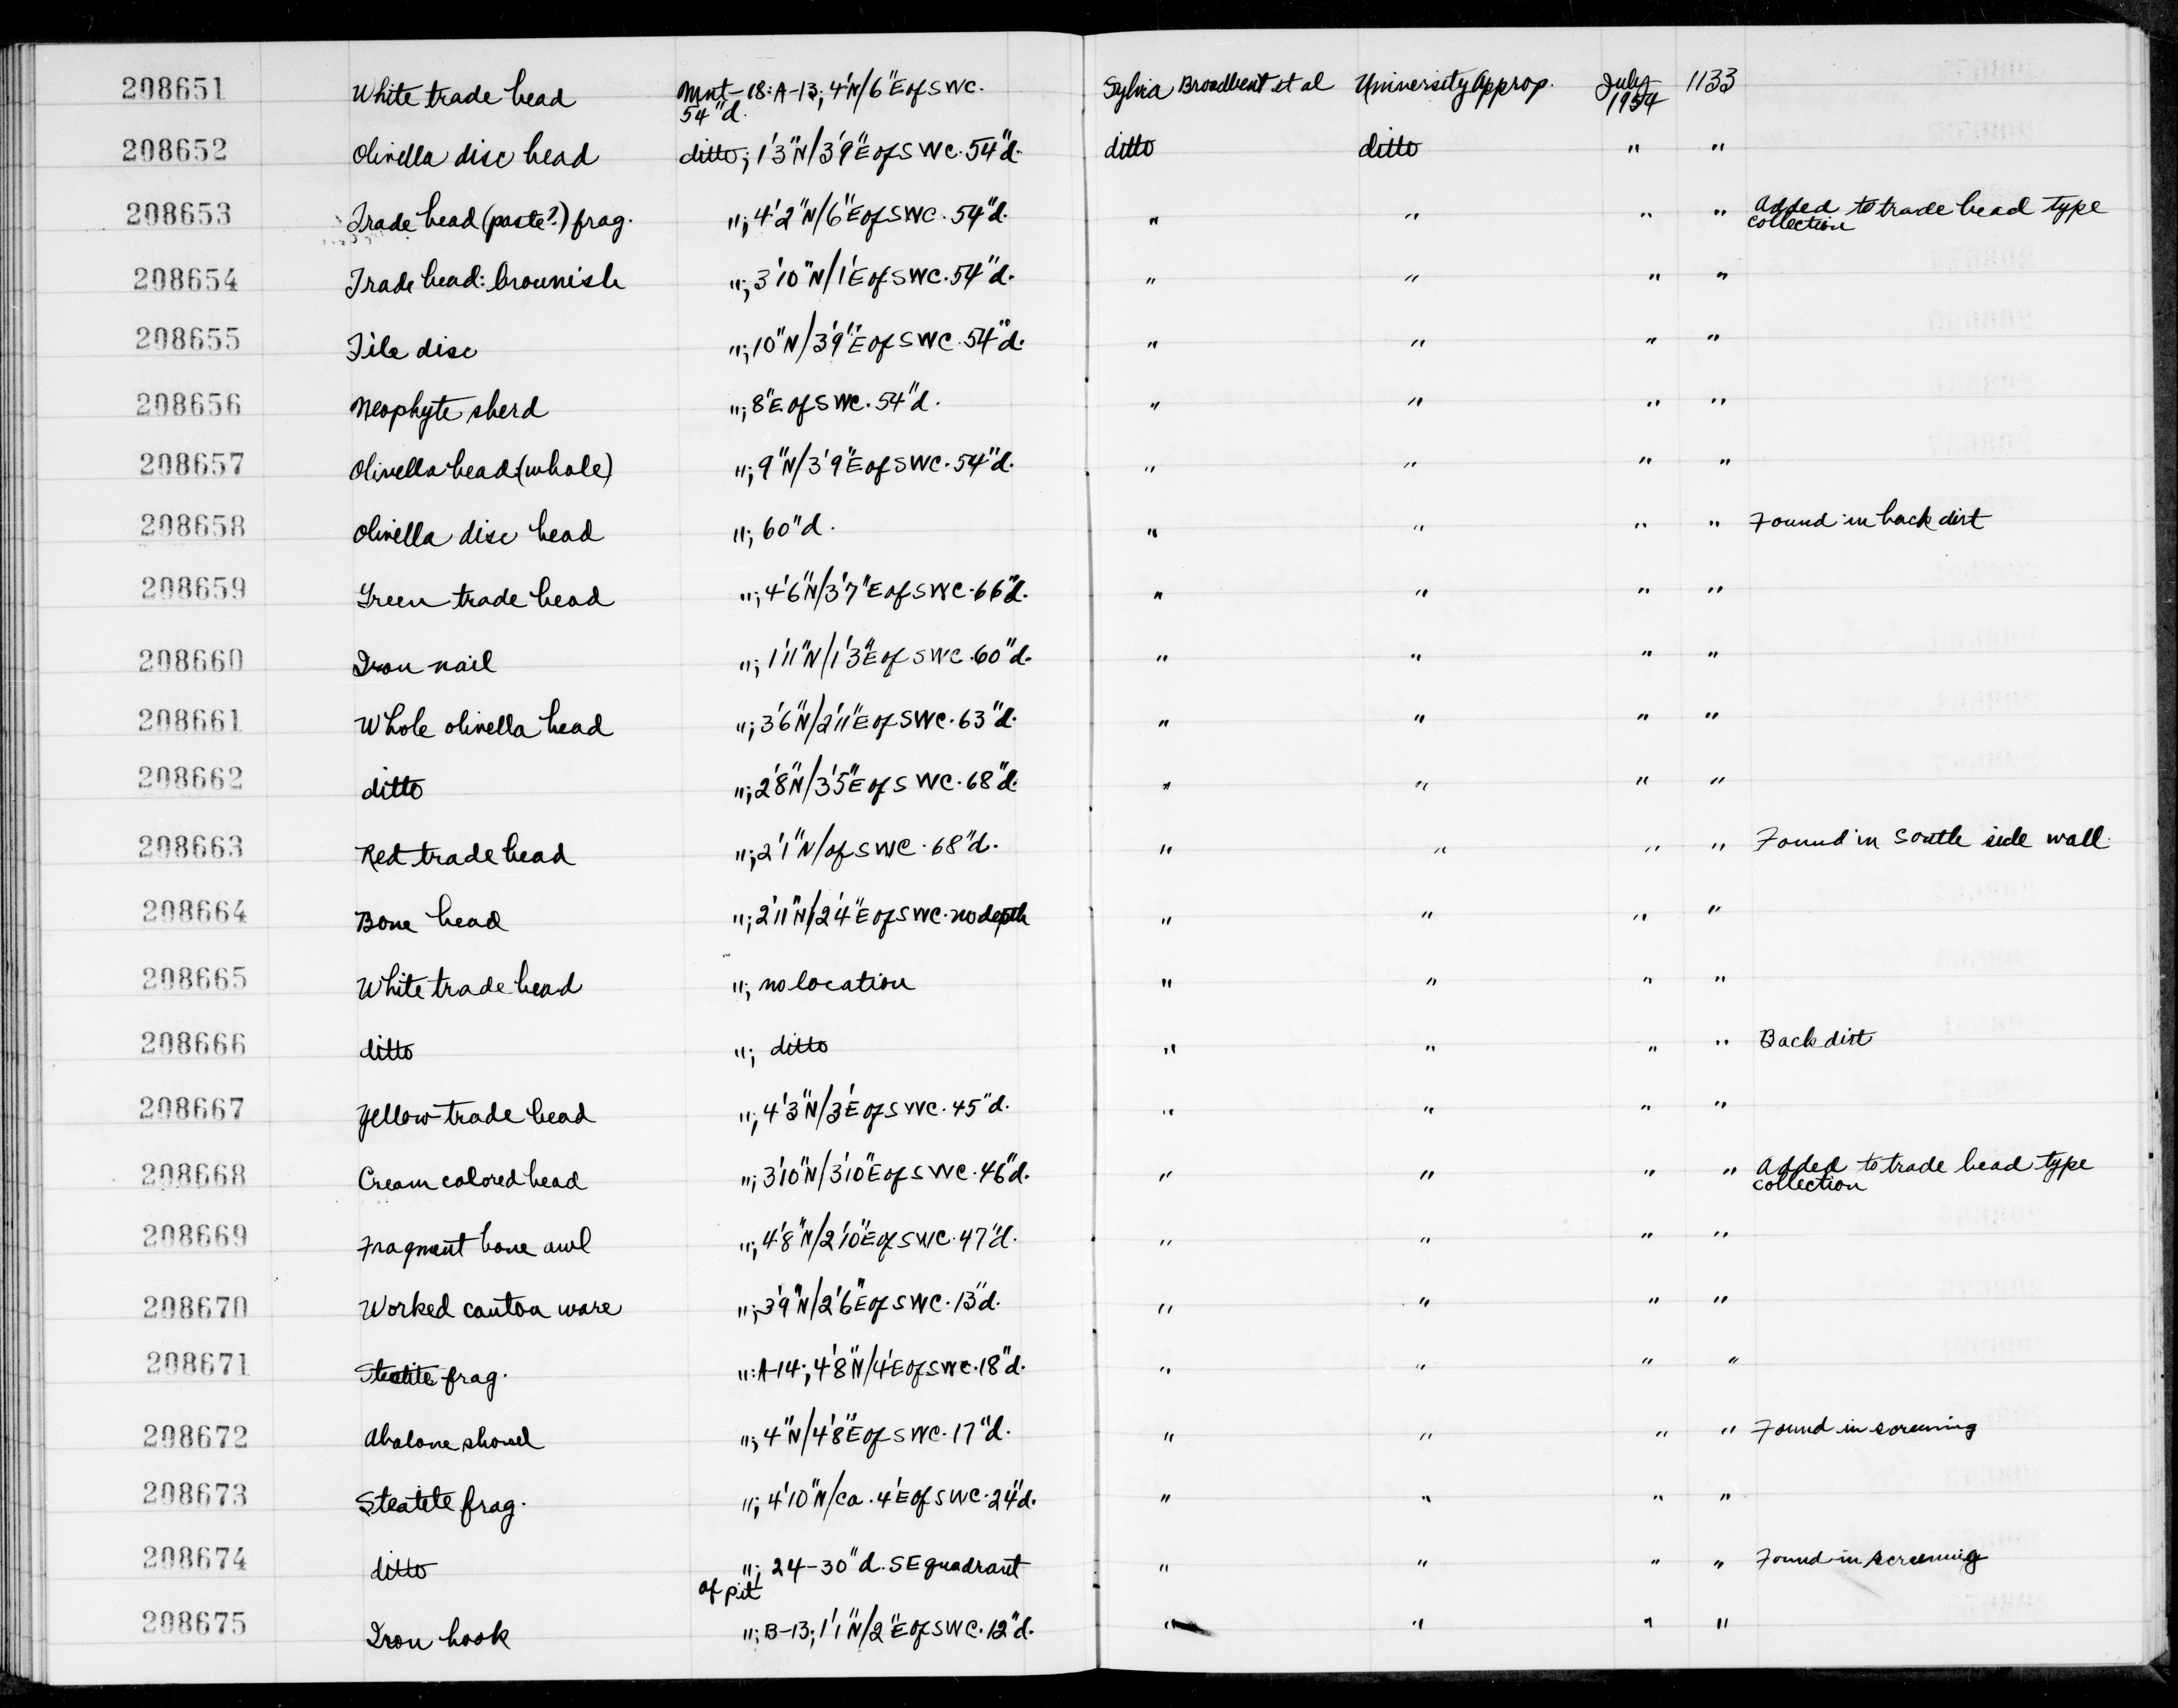 208651 White trade bead Mnt-18: A-13; 4'N/6"E of SWC. 54"d. Sylvia Broadbent et al University Approp. July 1954 1133
208652 Olivella disc bead ditto; 1'3"N/3'9"E of SWC. 54"d. ditto ditto " "
208653 Trade bead (paste?) frag. "; 4'2"N/6"E of SWC. 54"d. " " " " Added to trade bead type collection
208654 Trade bead: brownish "; 3'10"N/1'E of SWC. 54"d. " " " "
208655 Tile disc "; 10"N/3'9"E of SWC. 54"d. " " " "
208656 Neophyte sherd "; 8"E of SWC. 54"d. " " " "
208657 Olivella bead (whole) "; 9"N/3'9"E of SWC. 54"d. " " " "
208658 Olivella disc bead "; 60"d. " " " " Found in back dirt
208659 Green trade bead "; 4'6"N/3'7"E of SWC. 66"d. " " " "
208660 Iron nail "; 1'11"N/1'3"E of SWC. 60"d. " " " "
208661 Whole olivella bead "; 3'6"N/2'11"E of SWC. 63"d. " " " "
208662 ditto "; 2'8"N/3'5"E of SWC. 68"d. " " " "
208663 Red trade bead "; 2'1"N/of SWC. 68"d. " " " " Found in South side wall.
208664 Bone bead "; 2'11"N/2'4"E of SWC. no depth " " " "
208665 White trade bead "; no location " " " "
208666 ditto "; ditto " " " " Back dirt
208667 Yellow trade bead "; 4'3"N/3'E of SWC. 45"d. " " " "
208668 Cream colored bead "; 3'10"N/3'10"E of SWC. 46"d. " " " " Added to trade bead type collection
208669 Fragment bone awl "; 4'8"N/2'10"E of SWC. 47"d. " " " "
208670 Worked canton ware "; 3'9"N/2'6"E of SWC. 13"d. " " " "
208671 Steatite frag. ": A-14; 4'8"N/4'E of SWC. 18"d. " " " "
208672 Abalone shovel "; 4"N/4'8"E of SWC. 17"d. " " " " Found in screening
208673 Steatite frag. "; 4'10"N/ca. 4'E of SWC. 24"d. " " " "
208674 ditto "; 24-30"d. SE quadrant of pit " " " " Found in screening
208675 Iron hook "; B-13; 1'1"N/2"E of SWC. 12"d. " " " "